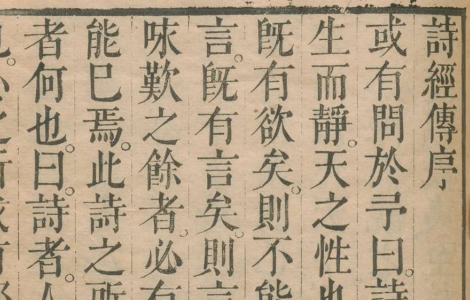 詩經傳序
或有問於予曰。詩
生而靜。天之性也
既有欲矣。則不能
言。既有言矣。則言
咏歎之餘者。必有
能已焉。此詩之所
者何也。曰。詩者。人